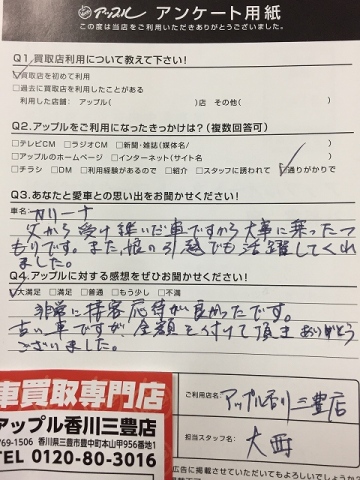 アップル アンケート用紙
この度は当店をご利用いただきありがとうございました。
Q1.買取店利用について教えて下さい!
☑買取店を初めて利用
□過去に買取店を利用したことがある
利用した店舗： アップル( )店 その他( )
Q2.アップルをご利用になったきっかけは?(複数回答可)
□テレビCM □ラジオCM □新聞・雑誌(媒体名/ )
□アップルのホームページ □インターネット(サイト名 )
□チラシ □DM □利用経験があるので □紹介 □スタッフに誘われて ☑通りがかりで
Q3.あなたと愛車との思い出をお聞かせください!
車名： カリーナ
父から受け継いだ車ですから大事に乗ったつ
もりです。また、娘の引越でも活躍してくれ
ました。
Q4.アップルに対する感想をぜひお聞かせください!
☑大満足 □満足 □普通 □もう少し □不満
非常に接客応待が良かったです。
古い車ですが金額を付けて頂きありがとう
ございました。
車買取専門店
アップル香川三豊店
769-1506 香川県三豊市豊中町本山甲956番地1
TEL 0120-80-3016
ご利用店名： アップル香川三豊店
担当スタッフ名： 大西
広告に掲載させていただいてもよろしいでしょうか